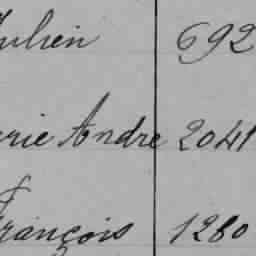 Julien 692
rie Andre 2041
François 1280